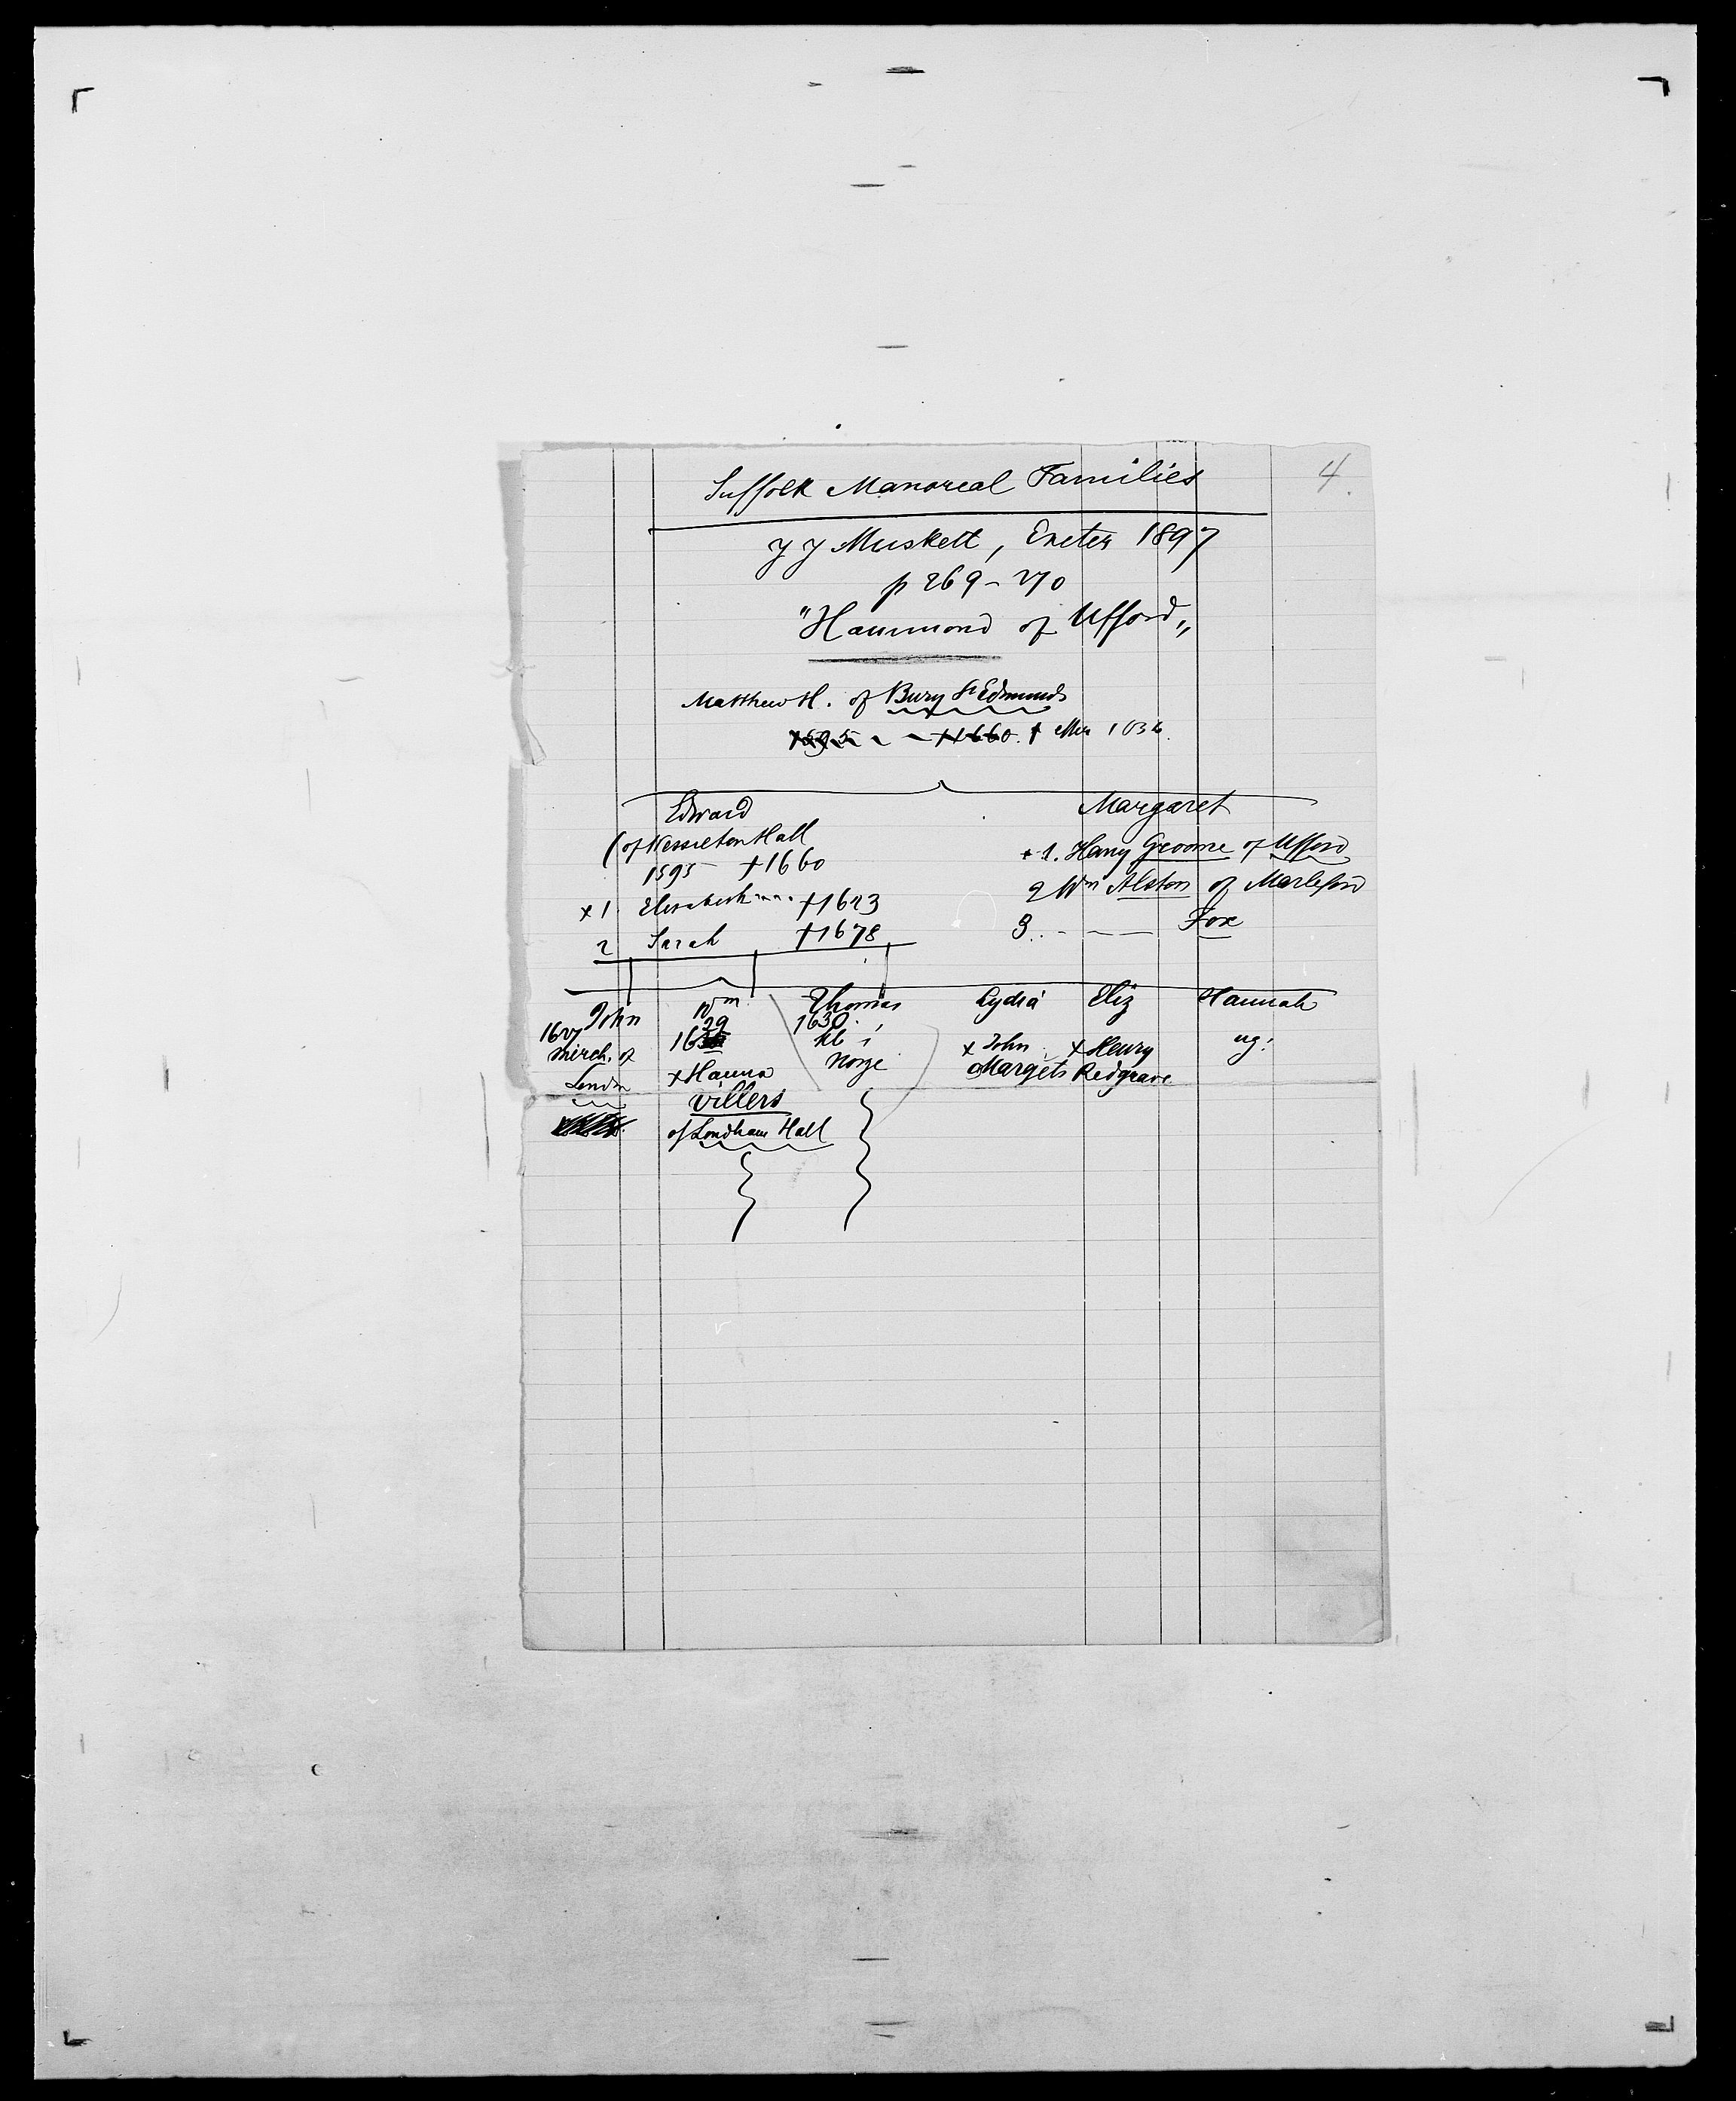 4.
Suffolk Manoreal Families
J J Muskett, Exeter 1897
p 269-270
"Hammond of Ufford"
Matthew H. of Bury St Edmunds
1595 - - +1660. †
Edward Margaret
(of Wesselton Hall + 1. Harry Groome of Ufford
1595 +1660 2 Wm Alston of Marlesford
x 1. Elisabeth +1623 3. - — Fox
2 Sarah +1678
John Wm Thomas Lydia Eliz Hannah
1627 29 1630. x John x Henry ug.
merch. of 16 kb i Margets Redgrave
London x Hanna Norge
Villers
of Loudham Hall